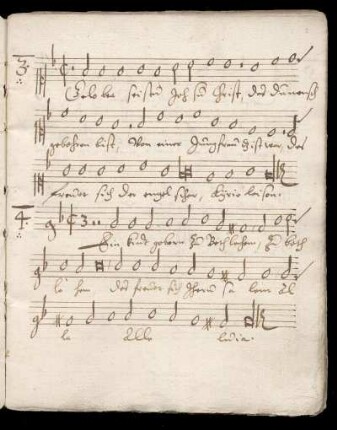 3.
Gelobet seistu Jesu Christ, das du mensch
gebohren bist, Von einer Jungfrau ist war, des
frewet sich der engel schar, Kyrieleison.
4.
Ein kindt geborn zu Bethlehem, zu beth
le hem des frewet sich Jheru sa lem Al
le Alle luia.